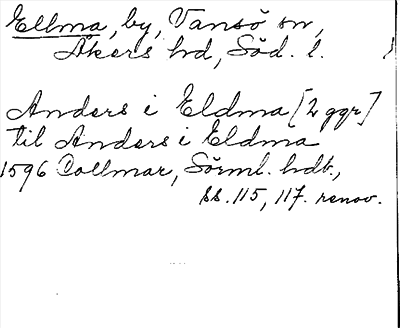 Ellma, by, Vansö sn,
Åkers hd, Söd. l.
Anders i Eldma [2 ggr]
til Anders i Eldma
1596 Dollmar, Sörml. hdb.,
ss. 115, 117. renov.